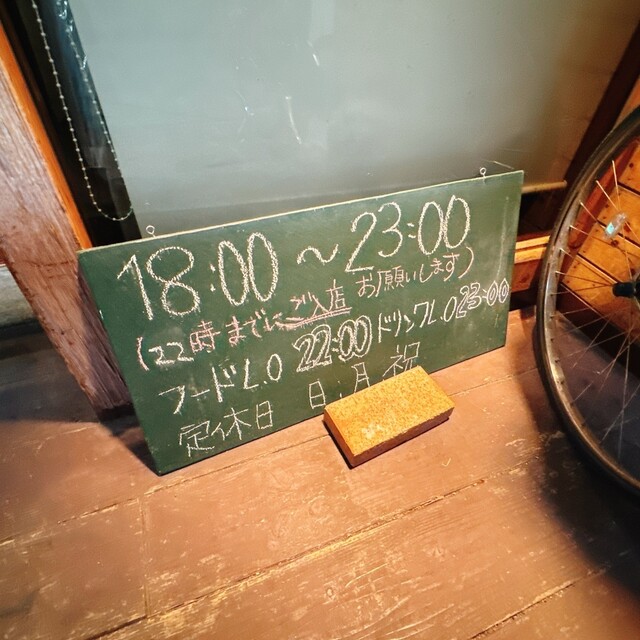 18:00 ~ 23:00
(22時までにご入店 お願いします)
フードL.O 22:00 ドリンクL.O 23:00
定休日 日.月 祝